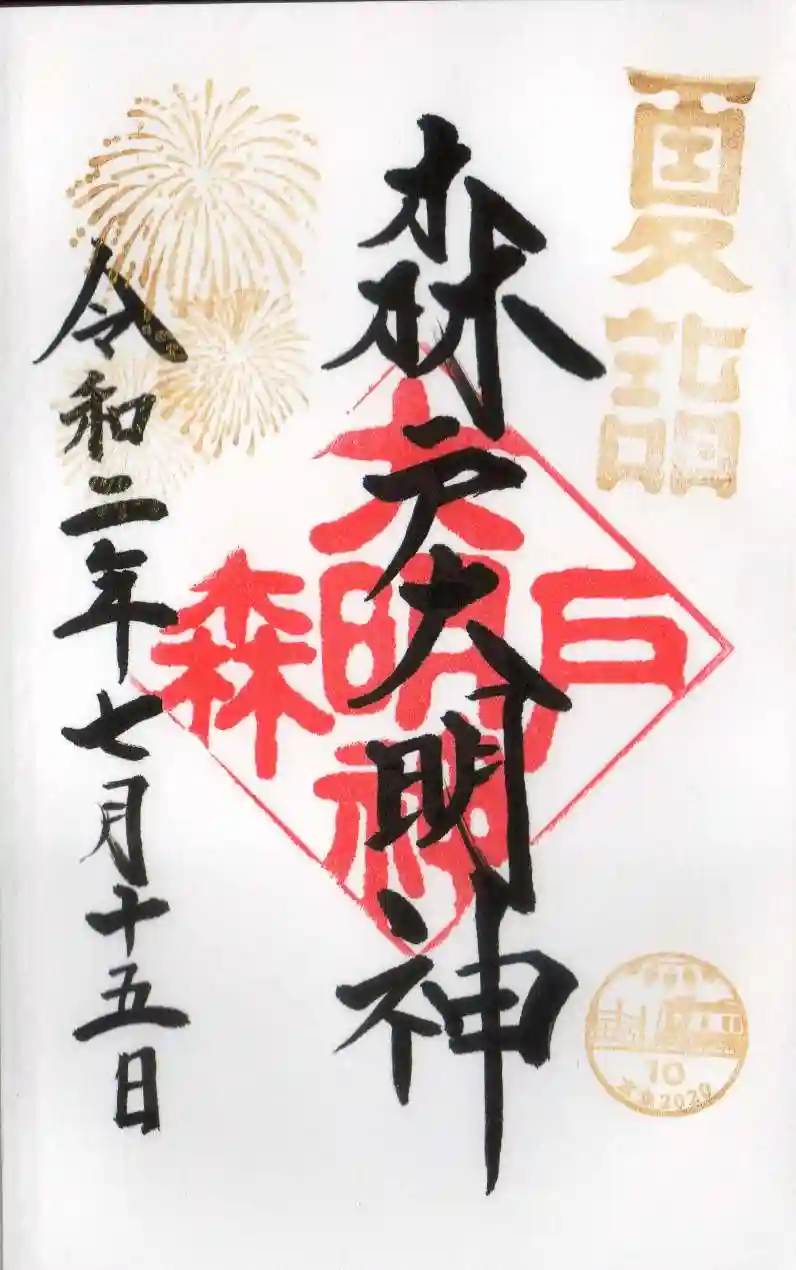 夏詣
森戸大明神
大明神
森戸
令和二年七月十五日
10
2020